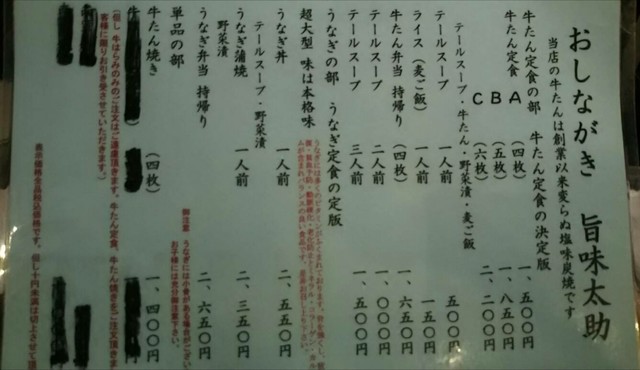 おしながき 旨味太助
当店の牛たんは創業以来変らぬ塩味炭焼です
牛たん定食の部 牛たん定食の決定版
牛たん定食 A (四枚) 一、五〇〇円
B (五枚) 一、八五〇円
C (六枚) 二、二〇〇円
テールスープ・牛たん・野菜漬・麦ご飯
テールスープ 一人前 五〇〇円
ライス(麦ご飯) 一人前 一五〇円
牛たん弁当 持帰り (四枚) 一、六五〇円
テールスープ 二人前 一、〇〇〇円
テールスープ 三人前 一、五〇〇円
うなぎの部 うなぎ定食の定版
超大型 味は本格味
うなぎ丼 一人前 二、五五〇円
テールスープ・野菜漬
うなぎ蒲焼 一人前 二、三五〇円
野菜漬
うなぎ弁当 持帰り 二、六五〇円
御注意 うなぎには小骨がある場合がござい
お子様には充分御注意下さい。
単品の部
牛たん焼き (四枚) 一、四〇〇円
(但し 牛はらみのみのご注文はご遠慮頂きます。牛たん定食、牛たん焼きをご注文頂きま
客様に限りお引き受させていただきます。)
表示価格は全品税込価格です。但し十円未満は切上させて頂